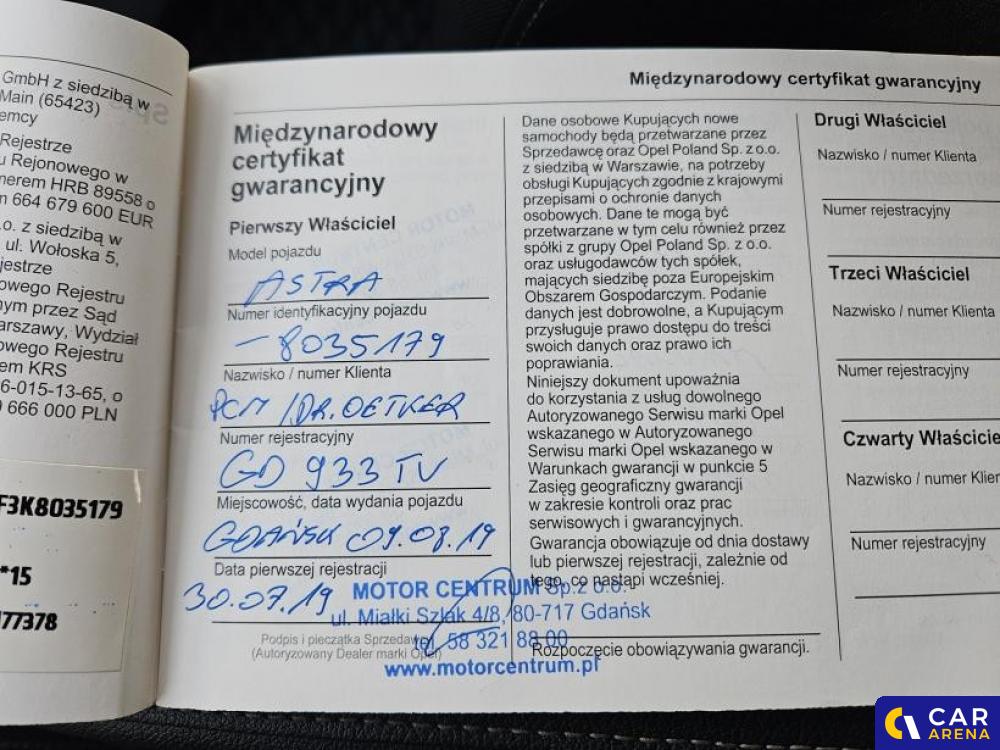 GmbH z siedzibą w
Main (65423)
emcy
Rejestrze
u Rejonowego w
nerem HRB 89558 o
n 664 679 600 EUR
.o. z siedzibą w
ul. Wołoska 5,
jestrze
owego Rejestru
nym przez Sąd
arszawy, Wydział
owego Rejestru
em KRS
6-015-13-65, o
9 666 000 PLN
F3K8035179
*15
177378
Międzynarodowy certyfikat gwarancyjny
Międzynarodowy
certyfikat
gwarancyjny
Pierwszy Właściciel
Model pojazdu
ASTRA
Numer identyfikacyjny pojazdu
-8035179
Nazwisko / numer Klienta
PCM /DR. OETKER
Numer rejestracyjny
GD 933 TV
Miejscowość, data wydania pojazdu
GDAŃSK 09.08.19
Data pierwszej rejestracji
30.07.19
MOTOR CENTRUM Sp.z o.o.
ul. Miałki Szlak 4/8, 80-717 Gdańsk
tel. 58 321 88 00
www.motorcentrum.pl
Podpis i pieczątka Sprzedawcy
(Autoryzowany Dealer marki Opel)
Dane osobowe Kupujących nowe
samochody będą przetwarzane przez
Sprzedawcę oraz Opel Poland Sp. z o.o.
z siedzibą w Warszawie, na potrzeby
obsługi Kupujących zgodnie z krajowymi
przepisami o ochronie danych
osobowych. Dane te mogą być
przetwarzane w tym celu również przez
spółki z grupy Opel Poland Sp. z o.o.
oraz usługodawców tych spółek,
mających siedzibę poza Europejskim
Obszarem Gospodarczym. Podanie
danych jest dobrowolne, a Kupującym
przysługuje prawo dostępu do treści
swoich danych oraz prawo ich
poprawiania.
Niniejszy dokument upoważnia
do korzystania z usług dowolnego
Autoryzowanego Serwisu marki Opel
wskazanego w Autoryzowanego
Serwisu marki Opel wskazanego w
Warunkach gwarancji w punkcie 5
Zasięg geograficzny gwarancji
w zakresie kontroli oraz prac
serwisowych i gwarancyjnych.
Gwarancja obowiązuje od dnia dostawy
lub pierwszej rejestracji, zależnie od
tego, co nastąpi wcześniej.
Rozpoczęcie obowiązywania gwarancji.
Drugi Właściciel
Nazwisko / numer Klienta
Numer rejestracyjny
Trzeci Właściciel
Nazwisko / numer Klienta
Numer rejestracyjny
Czwarty Właściciel
Nazwisko / numer Klien
Numer rejestracyjny
CAR
ARENA